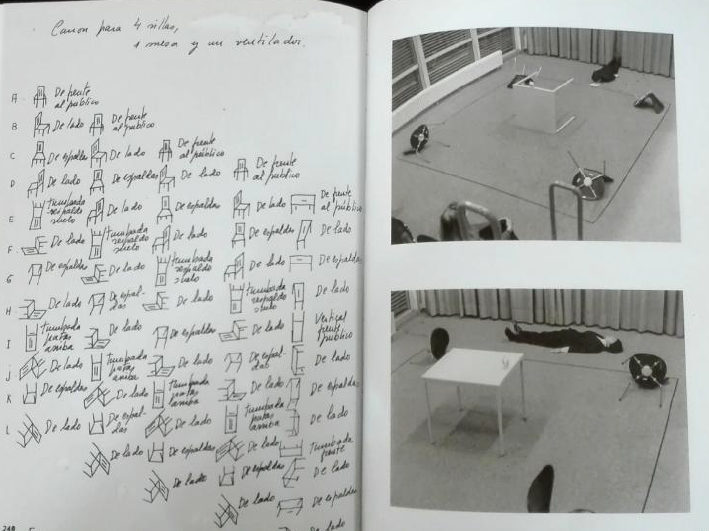 Canon para 4 sillas,
1 mesa y un ventilador.
A De frente al público
B De lado De frente al público
C De espaldas De lado De frente al público
D De lado De espaldas De lado De frente al público
E tumbada respaldo suelo De lado De espaldas De lado De frente al público
F De lado tumbada respaldo suelo De lado De espaldas De lado
G De espaldas De lado tumbada respaldo suelo De lado De espaldas
H De lado De espaldas De lado tumbada respaldo suelo De lado
I tumbada patas arriba De lado De espaldas De lado Vertical frente público
J De lado tumbada patas arriba De lado De espaldas De lado
K De espaldas De lado tumbada patas arriba De lado De espaldas
L De lado De espaldas De lado tumbada patas arriba De lado
De lado De espaldas De lado Tumbada frente
De lado De espaldas De lado
De lado De espaldas
De lado
240